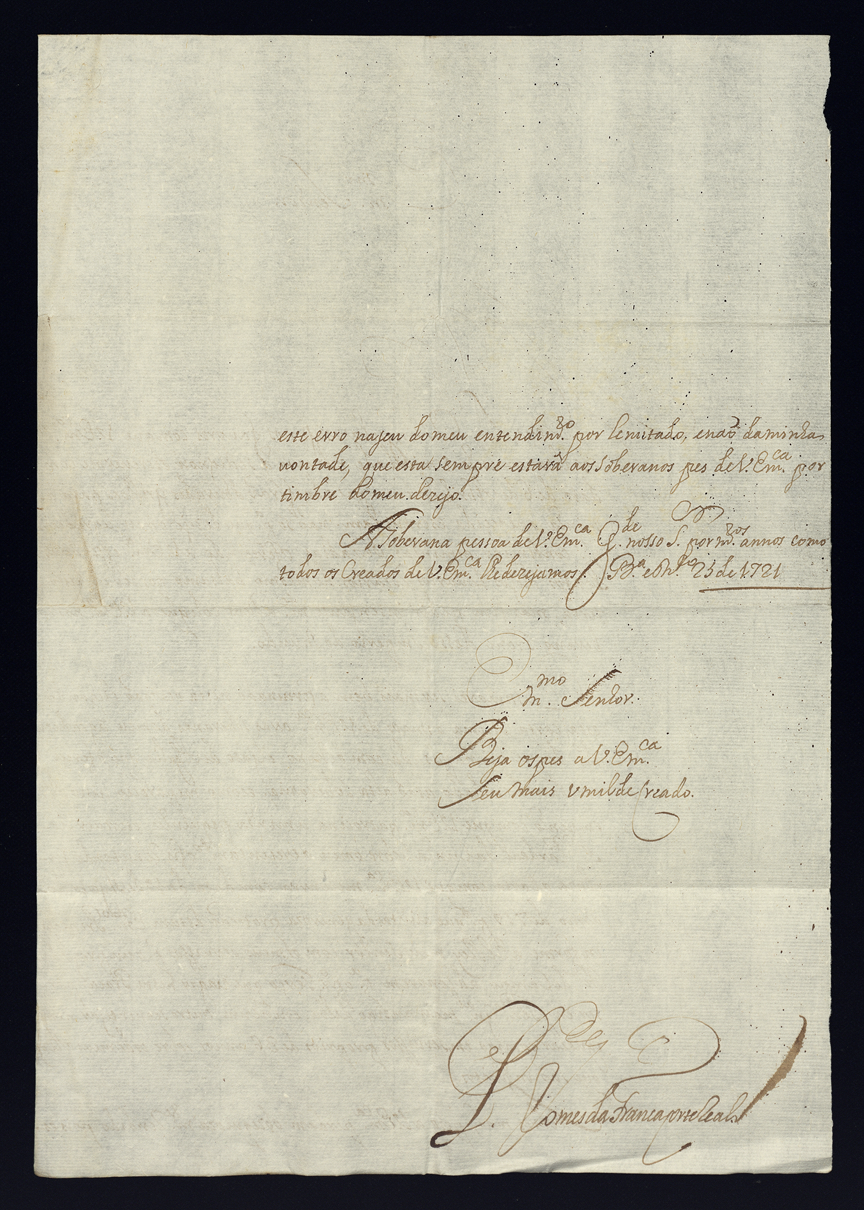 este erro naseu do meu entendim.to por lemitado, e naõ da minha
uontade, que esta sempre estarâ aos soberanos pes de V. Em.ca por
timbre do meu dezejo.
A soberana pessoa de V. Em.ca G.de nosso S. por m.tos annos como
todos os Creados de V. Em.ca lhe dezejamos. B.a e 25 de 1721
Em.mo Senhor.
Beja os pes a V. Em.ca
Seu mais vmilde Creado.
Gomes da França Corte Real